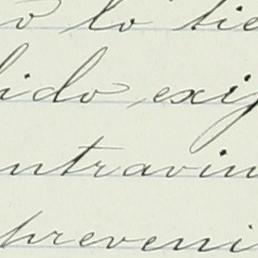 o lo tie
ido exij
ntravin
preveni